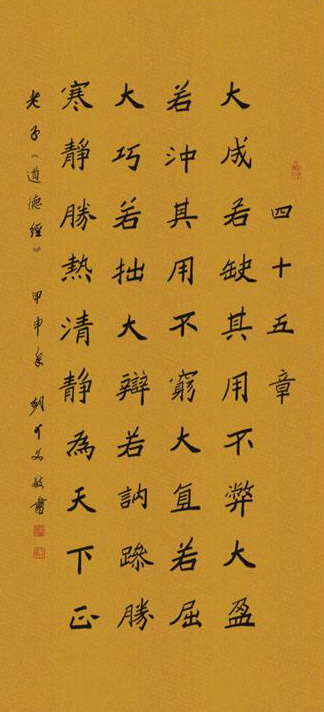 四十五章
大成若缺其用不弊大盈
若沖其用不窮大直若屈
大巧若拙大辯若訥躁勝
寒靜勝熱清靜為天下正
老子《道德經》 甲申年 書